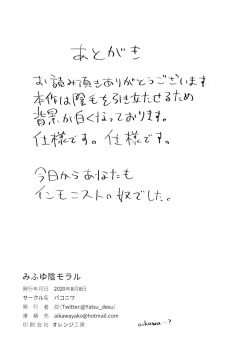 あとがき
お読み頂きありがとうございます
本作は陰毛を引き立たせるため
背景が白くなっております。
仕様です。仕様です。
今日からあなたも
インモニストの奴でした。
みふゆ陰モラル
発行年月日 2020年8月8日
サークル名 パコニワ
発行者 (Twitter:@Yatsu_desu)
連絡先 aikawayako@hotmail.com
印刷会社 オレンジ工房
aikawa